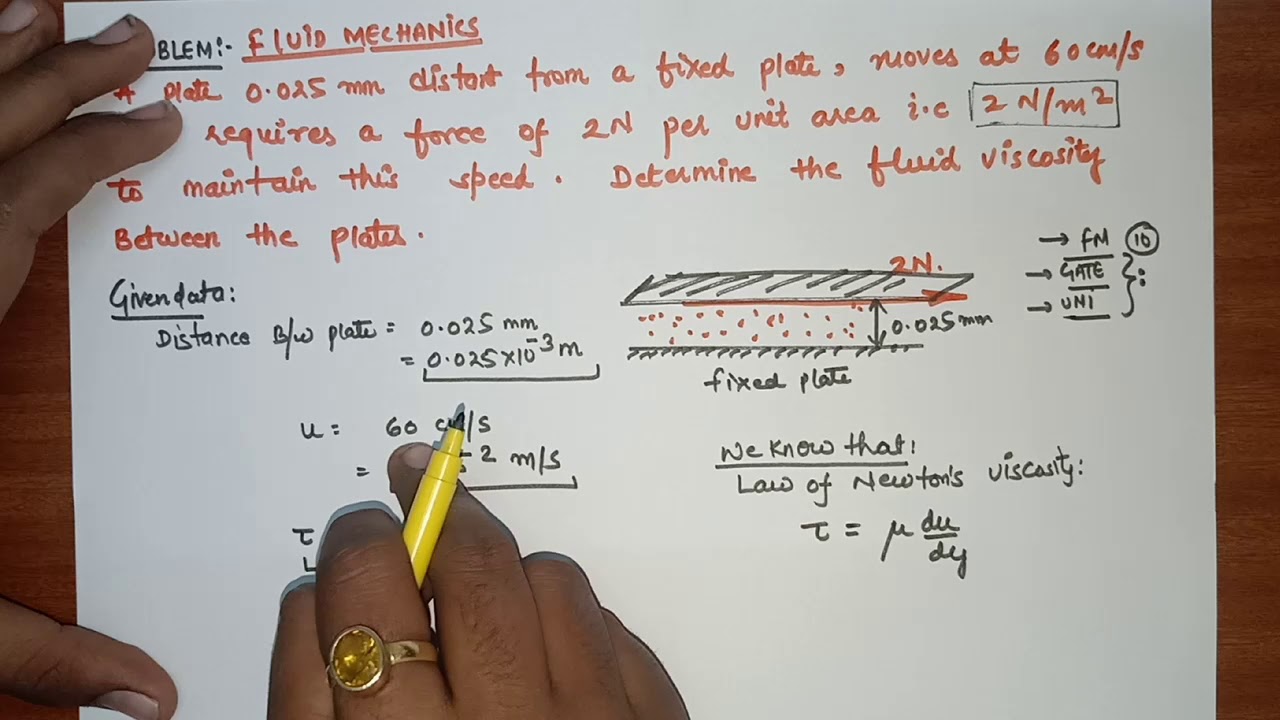 BLEM:- FLUID MECHANICS
A plate 0.025 mm distant from a fixed plate, moves at 60 cm/s
requires a force of 2N per unit area i.e 2 N/m²
to maintain this speed. Determine the fluid viscosity
Between the plates.
→ FM 10
→ GATE
→ UNI
Given data:
Distance B/w plate = 0.025 mm
= 0.025×10⁻³ m
2N.
0.025 mm
fixed plate
u = 60 cm/s
= 2 m/s
τ
We know that:
Law of Newton's viscosity:
τ = μ du/dy